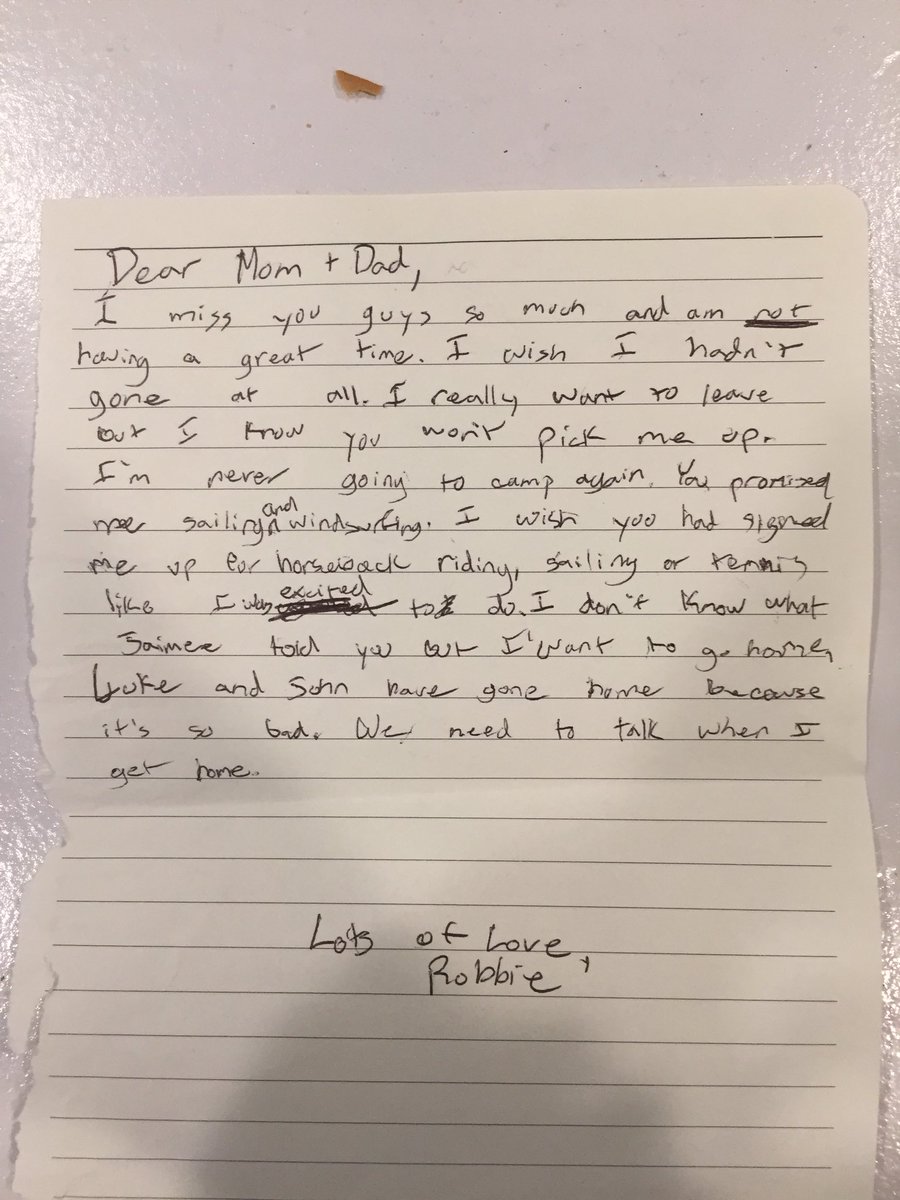 Dear Mom + Dad,
I miss you guys so much and am not
having a great time. I wish I hadn't
gone at all. I really want to leave
but I know you won't pick me up.
I'm never going to camp again. You promised
me sailing and windsurfing. I wish you had signed
me up for horseback riding, sailing or tennis
like I was excited to do. I don't know what
Jaimee told you but I want to go home,
Luke and John have gone home because
it's so bad. We need to talk when I
get home.
Lots of Love,
Robbie